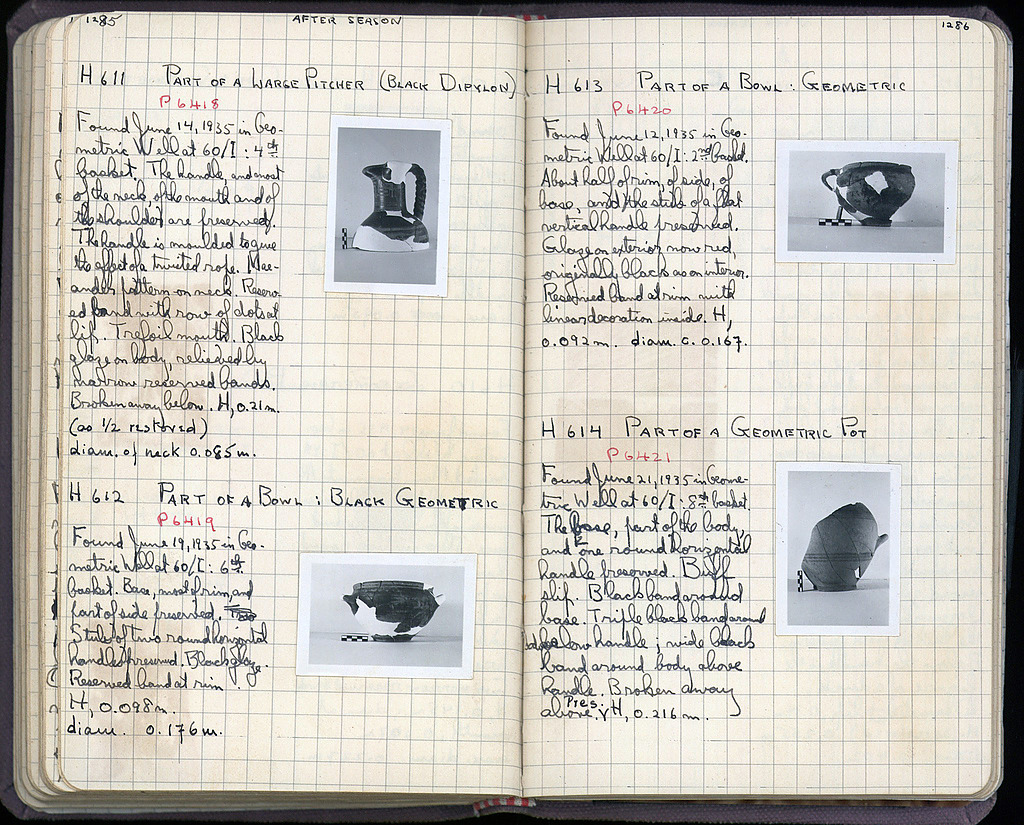 1285
AFTER SEASON
H 611 PART OF A LARGE PITCHER (BLACK DIPYLON)
P 6418
Found June 14, 1935 in Geo-
metric Well at 60/I : 4th
basket. The handle, and most
of the neck, of the mouth and of
the shoulder are preserved.
The handle is moulded to give
the effect of a twisted rope. Mae-
ander pattern on neck. Reserv-
ed band with row of dots at
lip. Trefoil mouth. Black
glaze on body, relieved by
narrow reserved bands.
Broken away below. H, 0.21 m.
(as 1/2 restored)
diam. of neck 0.085 m.
H 612 PART OF A BOWL : BLACK GEOMETRIC
P 6419
Found June 19, 1935 in Geo-
metric Well at 60/I : 6th
basket. Base, most of rim, and
part of side preserved.
Stubs of two round horizontal
handles preserved. Black glaze.
Reserved band at rim.
H, 0.098 m.
diam. 0.176 m.
1286
H 613 PART OF A BOWL : GEOMETRIC
P 6420
Found June 12, 1935 in Geo-
metric Well at 60/I : 2nd basket.
About half of rim, of side, of
base, and the stub of a flat
vertical handle preserved.
Glaze on exterior now red,
originally black as on interior.
Reserved band at rim with
linear decoration inside. H,
0.092 m. diam. c. 0.167.
H 614 PART OF A GEOMETRIC POT
P 6421
Found June 21, 1935 in Geome-
tric Well at 60/I : 8th basket.
The base, part of the body,
and one round horizontal
handle preserved. Buff
slip. Black band around
base. Triple black band around
below handle ; wide black
band around body above
handle. Broken away
above. Pres. H, 0.216 m.